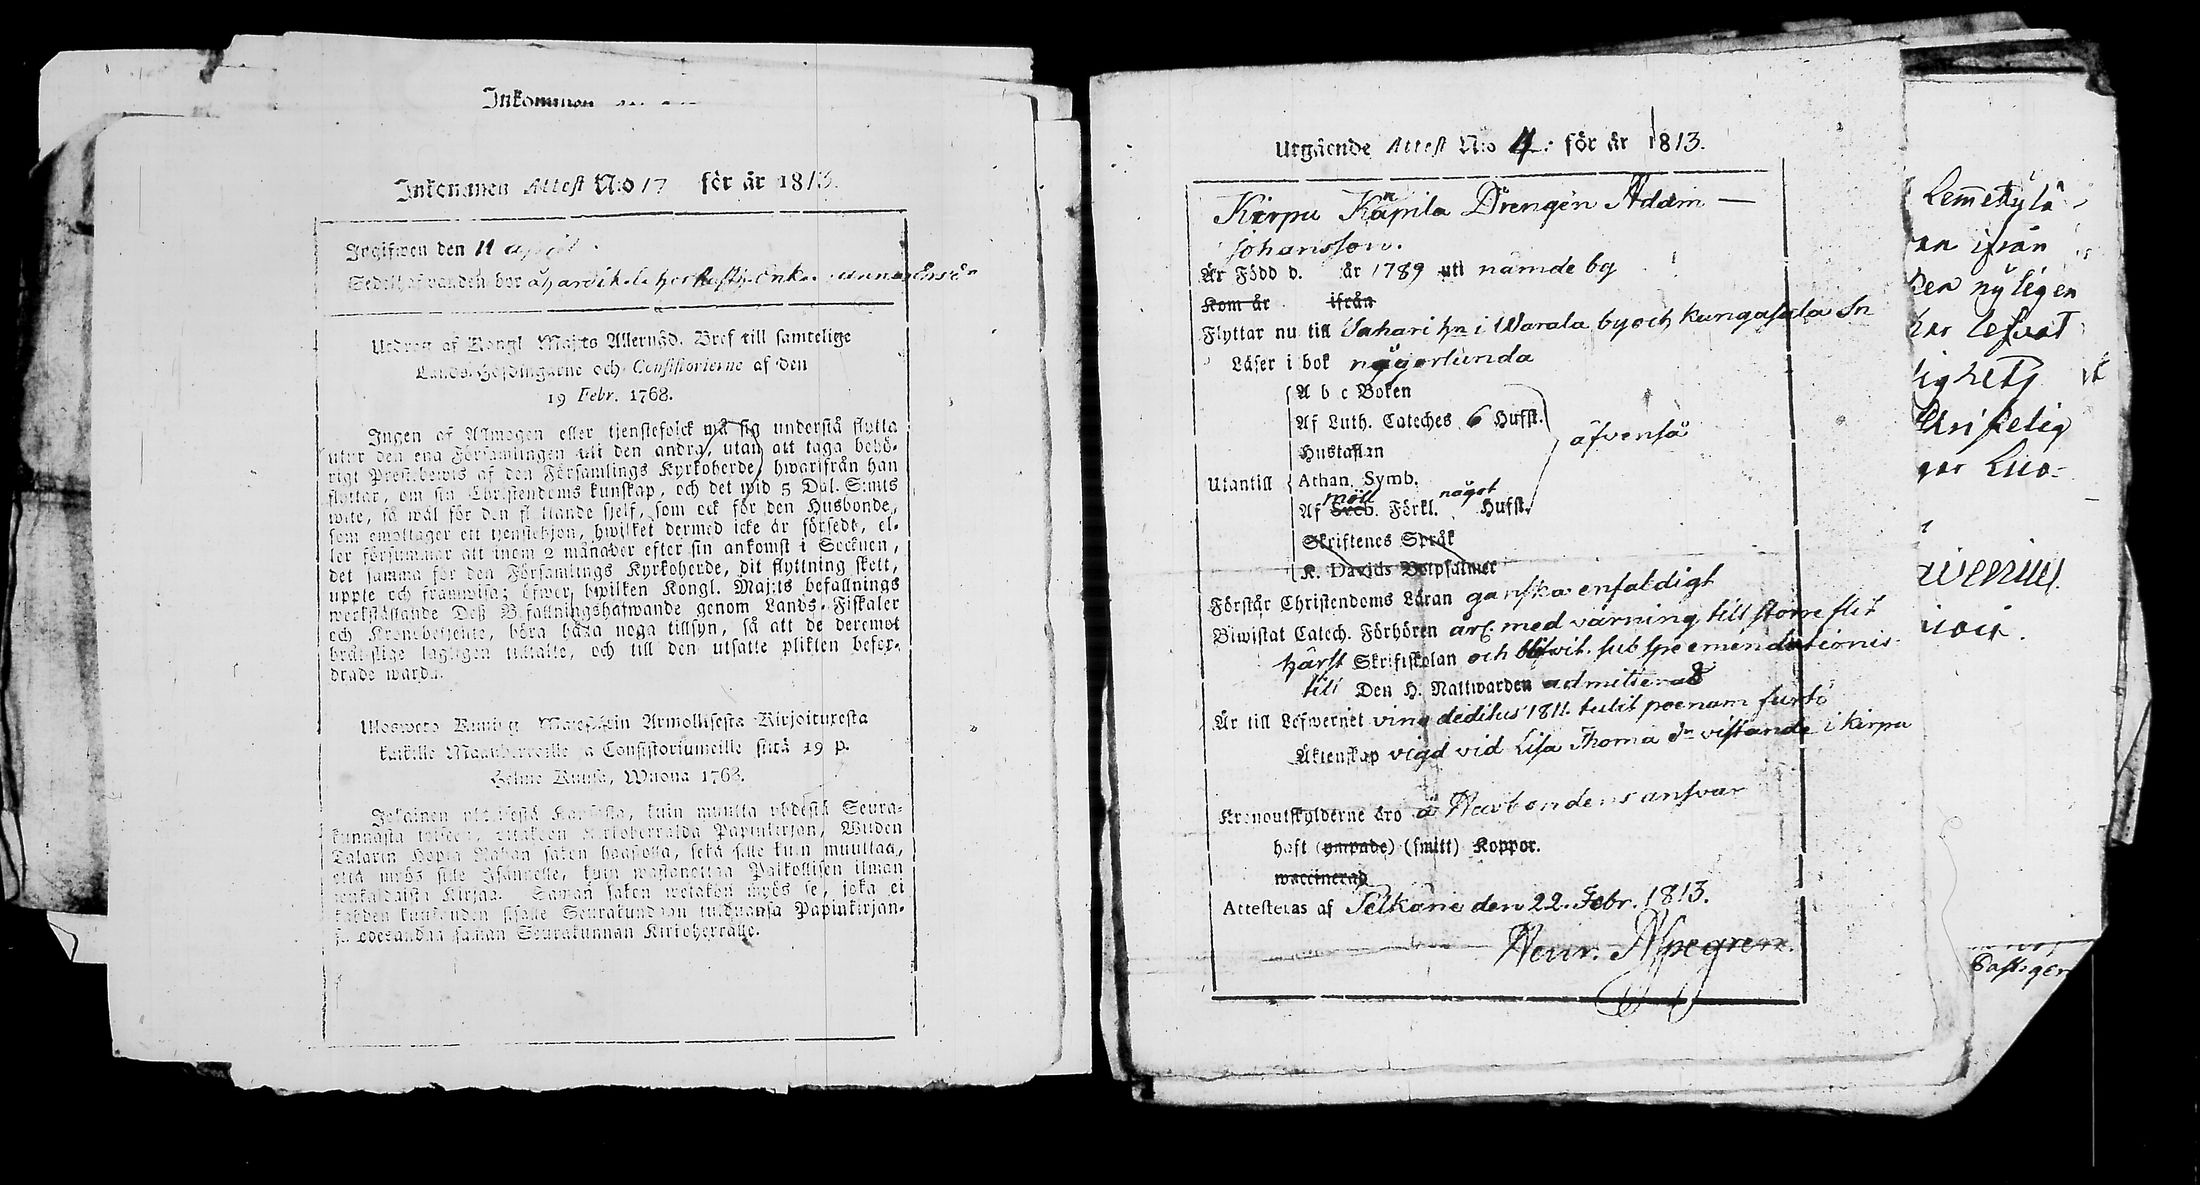 Inkommen
Inkommen Attest N:o 17 för år 1813.
Ingifwen den 11 april
Sedelhafwanden bor å
Utdrag af Kongl. Maj:ts Allernåd. Bref till samtelige
Lands-Höfdingarne och Consistorierne af den
19 Febr. 1768.
Ingen af Allmogen eller tjenstefolck må sig understå flytta
utur den ena Församlingen till den andra, utan att taga behö-
rigt Prestebewis af den Församlings Kyrkoherde, hwarifrån han
flyttar, om sin Christendoms kunskap, och det wid 5 Dal. S:mts
wite, så wäl för den flyttande sjelf, som ock för den Husbonde,
som emottager ett tjenstehjon, hwilket dermed icke är försedt, el-
ler försummar att inom 2 månader efter sin ankomst i Socknen,
det samma för den Församlings Kyrkoherde, dit flyttning skett,
uppte och framwisa; öfwer hwilken Kongl. Maj:ts befallnings
werkställande Deß Befallningshafwande genom Lands-Fiskaler
och Kronobetjente, böra hafwa noga tillsyn, så att de deremot
brottslige lagligen tilltalte, och till den utsatte plikten beford-
drade warda.
Ulosweto Kuning: Majestetin Armollisesta Kirjoituxesta
kaikille Maanherroille ja Consistoriumeille siitä 19 p.
Helme Kuusa, Wuona 1768.
Jokainen yhteisestä Kansasta, kuin muutta yhdestä Seura-
kunnasta toiseen, ottakoon Kirkoherralda Papinkirjan, Wiiden
Talarin Hopia Rahan sakon haastolla, sekä sille kuin muuttaa,
että myös sille Isännelle, kuin wastanottaa Palkollisen ilman
senkaldaista Kirjaa. Saman sakon wetäkön myös se, joka ei
kahden kuukauden sisälle Seurakundaan tulduansa Papinkirjan-
sa edesanna saman Seurakunnan Kirkoherralle.
Utgående Attest N:o 4: för år 1813.
Kirpu Käpila Drengen Adam —
Johansson.
Är Född d. år 1789 uti nämde by
Kom år ifrån
Flyttar nu till Sahari hn i Warala by och Kangasala Sn
Läser i bok någorlunda
A b c Boken
Af Luth. Cateches 6 Hufst.
Hustaflan
äfvenså
Utantill
Athan. Symb.
Af Sveb. möll Förkl. något Hufst.
Skriftenes Språk
K. Davids Botpsalmer
Förstår Christendoms Läran ganska enfaldigt
Biwistat Catech. Förhören årl. med varning till större flit
härst Skriftskolan och blifvit sub spe emendationis
till Den H. Nattwarden admitterad
Är till Lefwernet vino deditus 1811. tulit poenam furti
Äktenskap vigd vid Lisa Thoma dr vistande i Kirpu
Kronoutskylderne äro å Husbondens ansvar
haft (ympade) (smitt) Koppor.
waccinerad
Attesteras af Pelkäne den 22. Febr. 1813.
Henr. Alpegren.
Lemetylä
an ifrån
nyligen
lefvat
lighets
Christelig